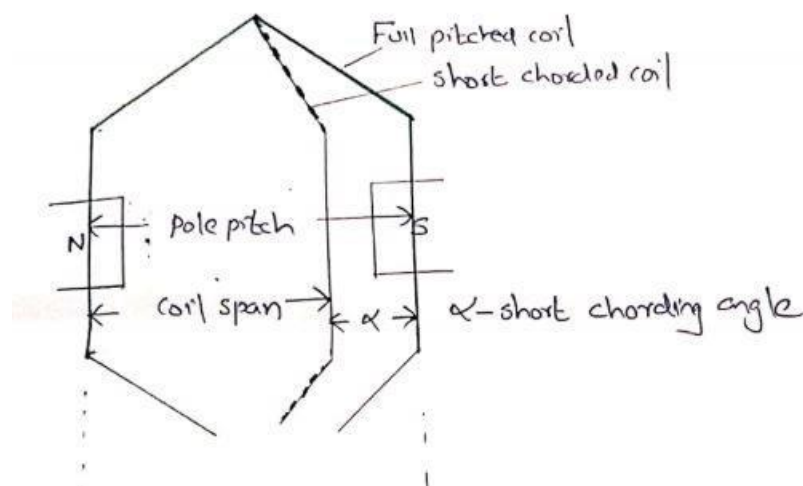 Full pitched coil
short chorded coil
N
pole pitch
S
coil span
α
α-short chording angle